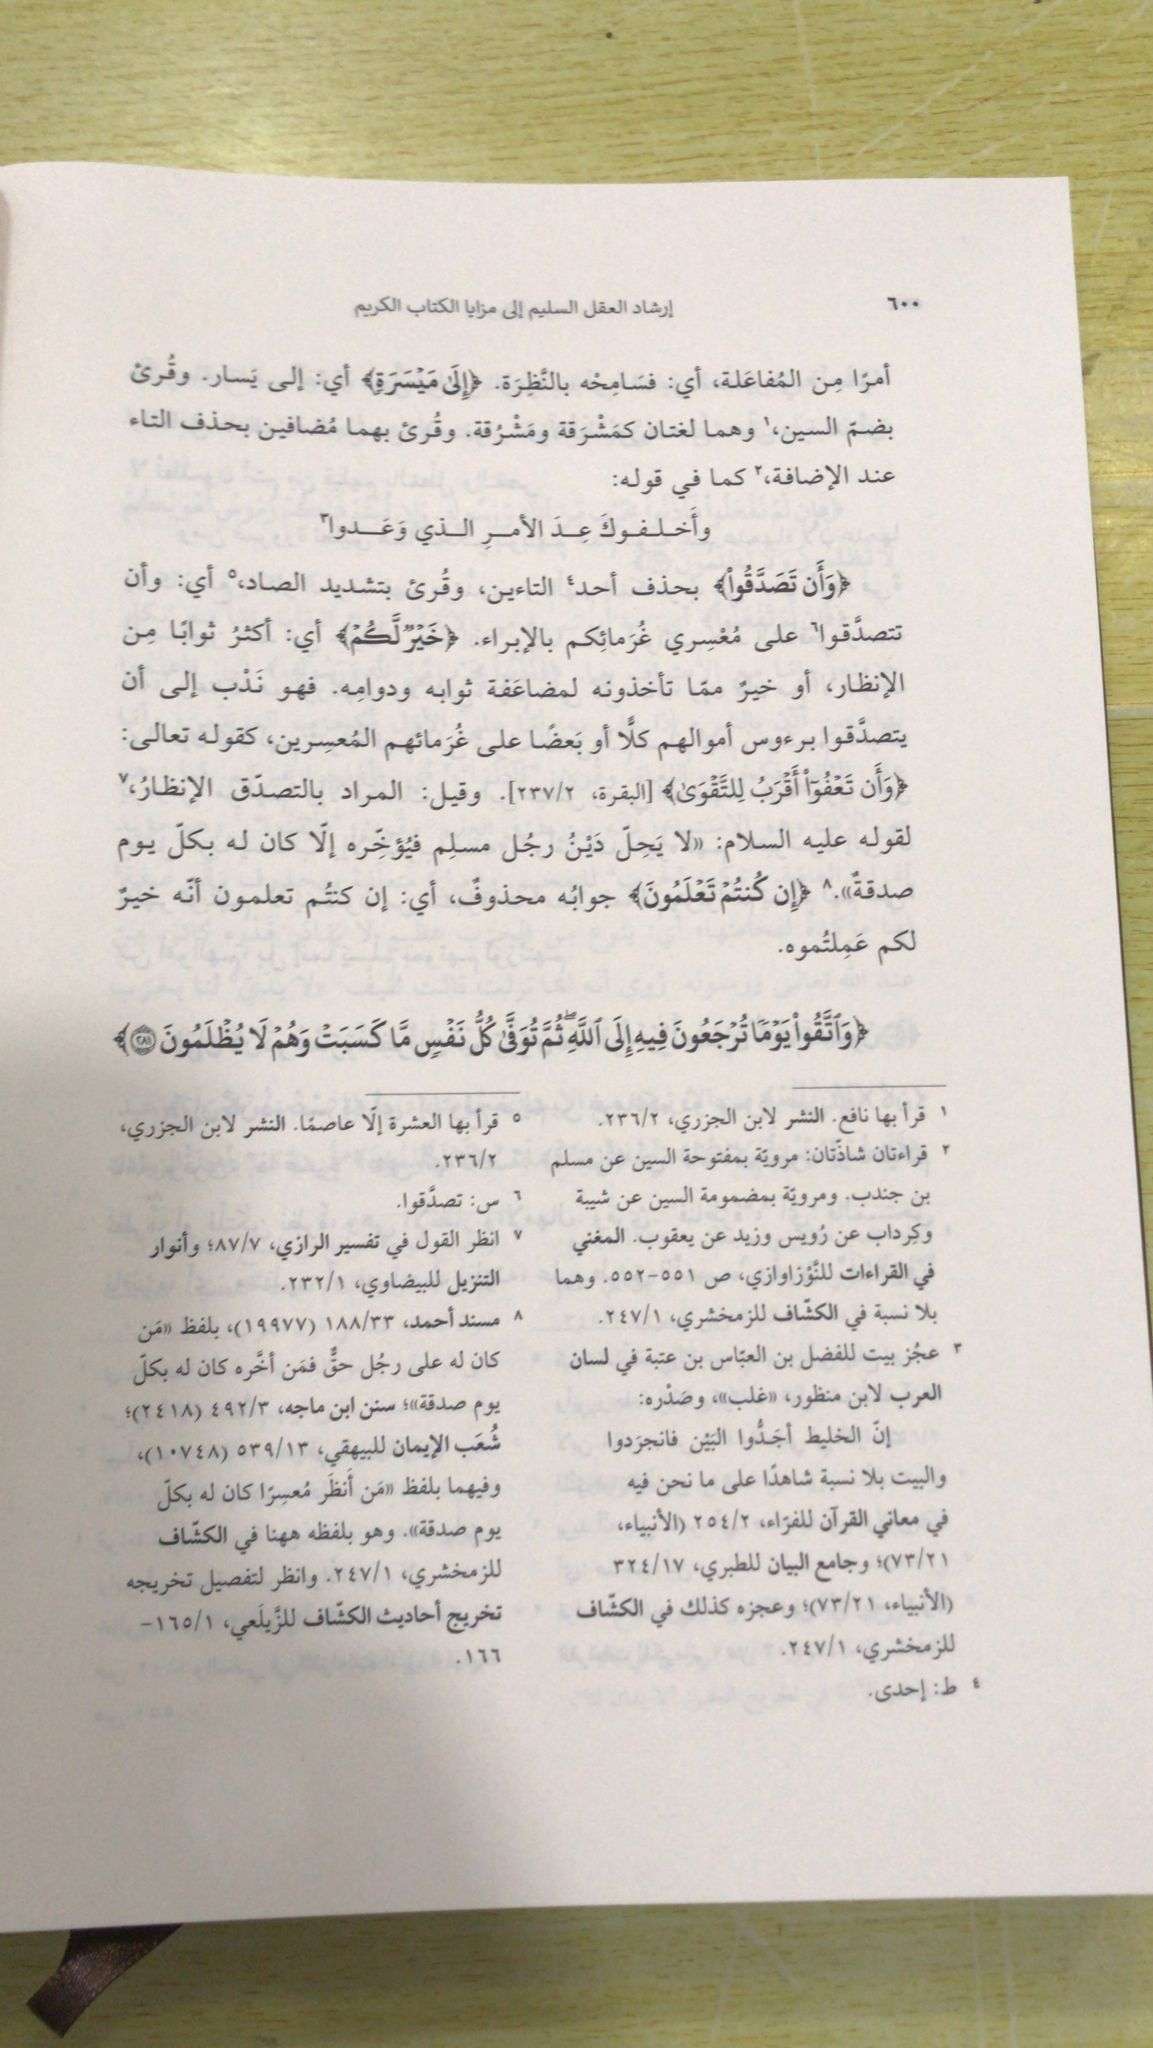 ٦٠٠
إرشاد العقل السليم إلى مزايا الكتاب الكريم
أمرًا مِن المُفاعَلة، أي: فسَامِحْه بالنَّظِرَة. ﴿إِلَىٰ مَيْسَرَةٍ﴾ أي: إلى يَسار. وقُرئ
بضمّ السين،١ وهما لغتان كمَشْرَقة ومَشْرُقة. وقُرئ بهما مُضافين بحذف التاء
عند الإضافة،٢ كما في قوله:
وأَخلفوكَ عِدَ الأمرِ الذي وَعَدوا٣
﴿وَأَن تَصَدَّقُواْ﴾ بحذف أحد٤ التاءين، وقُرئ بتشديد الصاد،٥ أي: وأن
تتصدَّقوا٦ على مُعْسِري غُرَمائِكم بالإبراء. ﴿خَيْرٌ لَّكُمْ﴾ أي: أكثرُ ثوابًا مِن
الإنظار، أو خيرٌ ممّا تأخذونه لمضاعَفة ثوابه ودوامِه. فهو نَدْب إلى أن
يتصدَّقوا برءوس أموالهم كلًّا أو بَعضًا على غُرَمائهم المُعسِرين، كقوله تعالى:
﴿وَأَن تَعْفُوٓاْ أَقْرَبُ لِلتَّقْوَىٰ﴾ [البقرة، ٢٣٧/٢]. وقيل: المراد بالتصدّق الإنظارُ،٧
لقوله عليه السلام: «لا يَحِلّ دَيْنُ رجُل مسلِم فيُؤخِّره إلّا كان له بكلّ يوم
صدقةٌ».٨ ﴿إِن كُنتُمْ تَعْلَمُونَ﴾ جوابُه محذوفٌ، أي: إن كنتُم تعلمون أنّه خيرٌ
لكم عَمِلتُموه.
﴿وَٱتَّقُواْ يَوْمًا تُرْجَعُونَ فِيهِ إِلَى ٱللَّهِۖ ثُمَّ تُوَفَّىٰ كُلُّ نَفْسٍ مَّا كَسَبَتْ وَهُمْ لَا يُظْلَمُونَ ۝٢٨١﴾
١ قرأ بها نافع. النشر لابن الجزري، ٢٣٦/٢.
٢ قراءتان شاذّتان: مرويّة بمفتوحة السين عن مسلم
بن جندب. ومرويّة بمضمومة السين عن شيبة
وكِرداب عن رُويس وزيد عن يعقوب. المغني
في القراءات للنَّوْزاوازي، ص ٥٥١-٥٥٢. وهما
بلا نسبة في الكشّاف للزمخشري، ٢٤٧/١.
٣ عجُز بيت للفضل بن العبّاس بن عتبة في لسان
العرب لابن منظور، «غلب»، وصَدْره:
إنّ الخليط أجَدُّوا البَيْن فانجرَدوا
والبيت بلا نسبة شاهدًا على ما نحن فيه
في معاني القرآن للفرّاء، ٢٥٤/٢ (الأنبياء،
٧٣/٢١)؛ وجامع البيان للطبري، ٣٢٤/١٧
(الأنبياء، ٧٣/٢١)؛ وعجزه كذلك في الكشّاف
للزمخشري، ٢٤٧/١.
٤ ط: إحدى.
٥ قرأ بها العشرة إلّا عاصمًا. النشر لابن الجزري،
٢٣٦/٢.
٦ س: تصدَّقوا.
٧ انظر القول في تفسير الرازي، ٨٧/٧؛ وأنوار
التنزيل للبيضاوي، ٢٣٢/١.
٨ مسند أحمد، ١٨٨/٣٣ (١٩٩٧٧)، بلفظ «مَن
كان له على رجُل حقٌّ فمَن أخَّره كان له بكلّ
يوم صدقة»؛ سنن ابن ماجه، ٤٩٢/٣ (٢٤١٨)؛
شُعَب الإيمان للبيهقي، ٥٣٩/١٣ (١٠٧٤٨)،
وفيهما بلفظ «مَن أَنظَر مُعسِرًا كان له بكلّ
يوم صدقة». وهو بلفظه ههنا في الكشّاف
للزمخشري، ٢٤٧/١. وانظر لتفصيل تخريجه
تخريج أحاديث الكشّاف للزَّيلَعي، ١٦٥/١-
١٦٦.